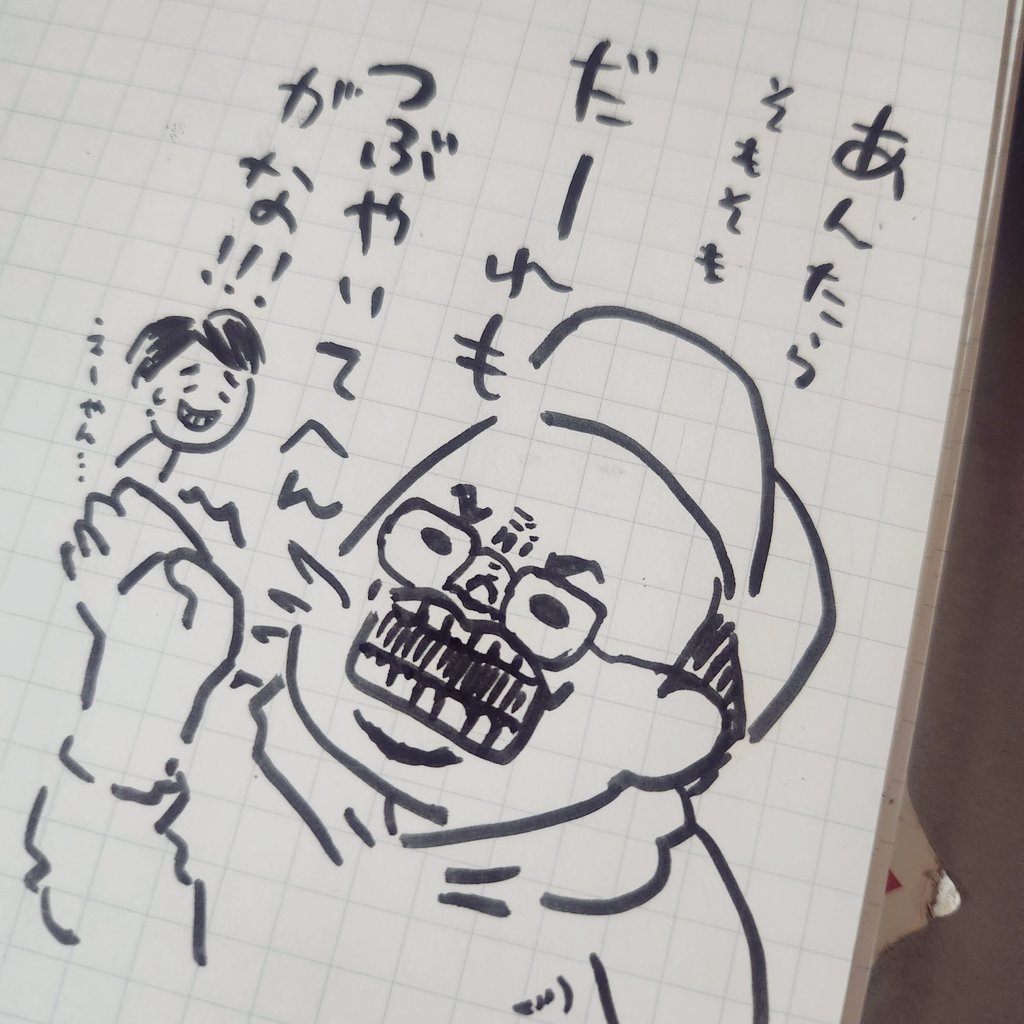 あんたら
そもそも
だーれも
つぶやいてへん
がな!!!